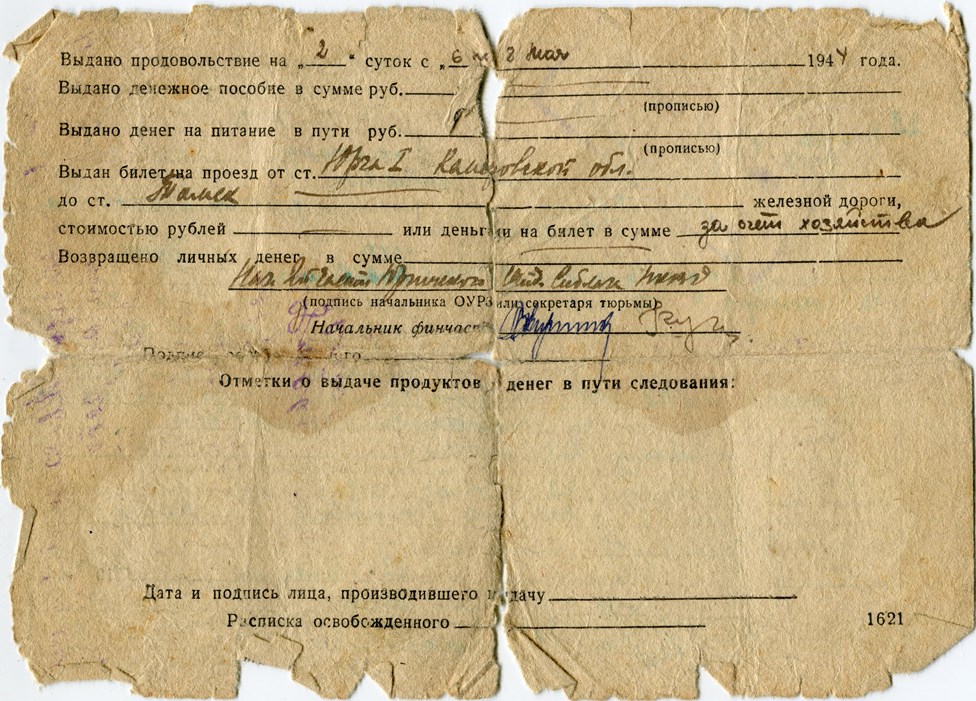 Выдано продовольствие на „2“ суток с „6 8 мая 1944 года.
Выдано денежное пособие в сумме руб.
(прописью)
Выдано денег на питание в пути руб.
(прописью)
Выдан билет на проезд от ст. Юрга I Кемеровской обл.
до ст. Томск железной дороги,
стоимостью рублей или деньгами на билет в сумме за счет хозяйства
Возвращено личных денег в сумме
Нач.
(подпись начальника ОУРЗ или секретаря тюрьмы)
Начальник финчасти
Отметки о выдаче продуктов денег в пути следования:
Дата и подпись лица, производившего выдачу
Расписка освобожденного
1621